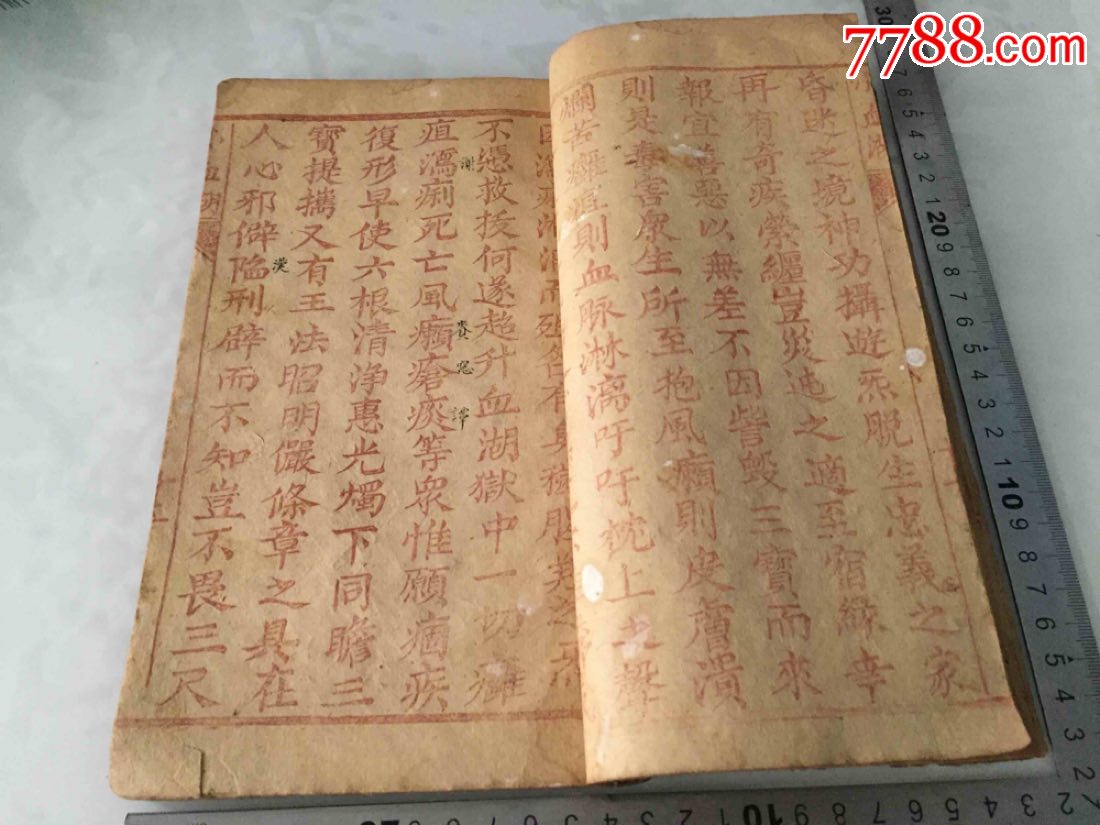 7788.com
昏迷之境神功攝遊炁脫生忠義之家
再有奇疾縈纏豈災迍之適至宿緣幸
報宜善惡以無差不因訾毀三寶而來
則是毒害衆生所至抱風癩則皮膚潰
爛苦癰疽則血脉淋漓吁吁枕上
不憑救拔何遂超升血湖獄中一切癰
疽濡痢死亡風癩瘡痍等衆惟願痼疾
復形早使六根清淨惠光燭下同瞻三
寶提攜又有王法昭明儼條章之具在
人心邪僻陷刑辟而不知豈不畏三尺